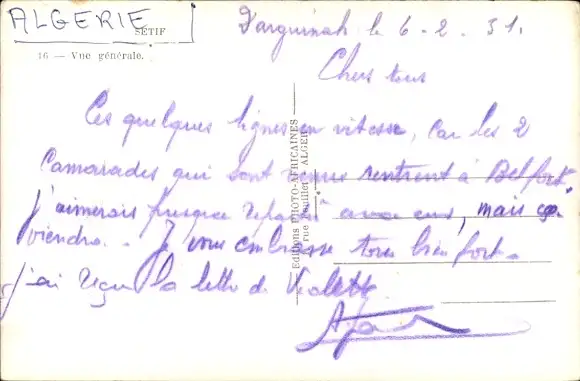 ALGERIE
SÉTIF
16 — Vue générale.
Darguinah le 6-2.51.
Chers tous
Ces quelques lignes en vitesse, car les 2
camarades qui sont venus rentrent à Belfort.
J'aimerais presque repartir avec eux, mais ça
viendra. Je vous embrasse tous bien fort.
J'ai reçu la lettre de Violette
Editions PHOTO-AFRICAINES
rue Feuillet ALGER